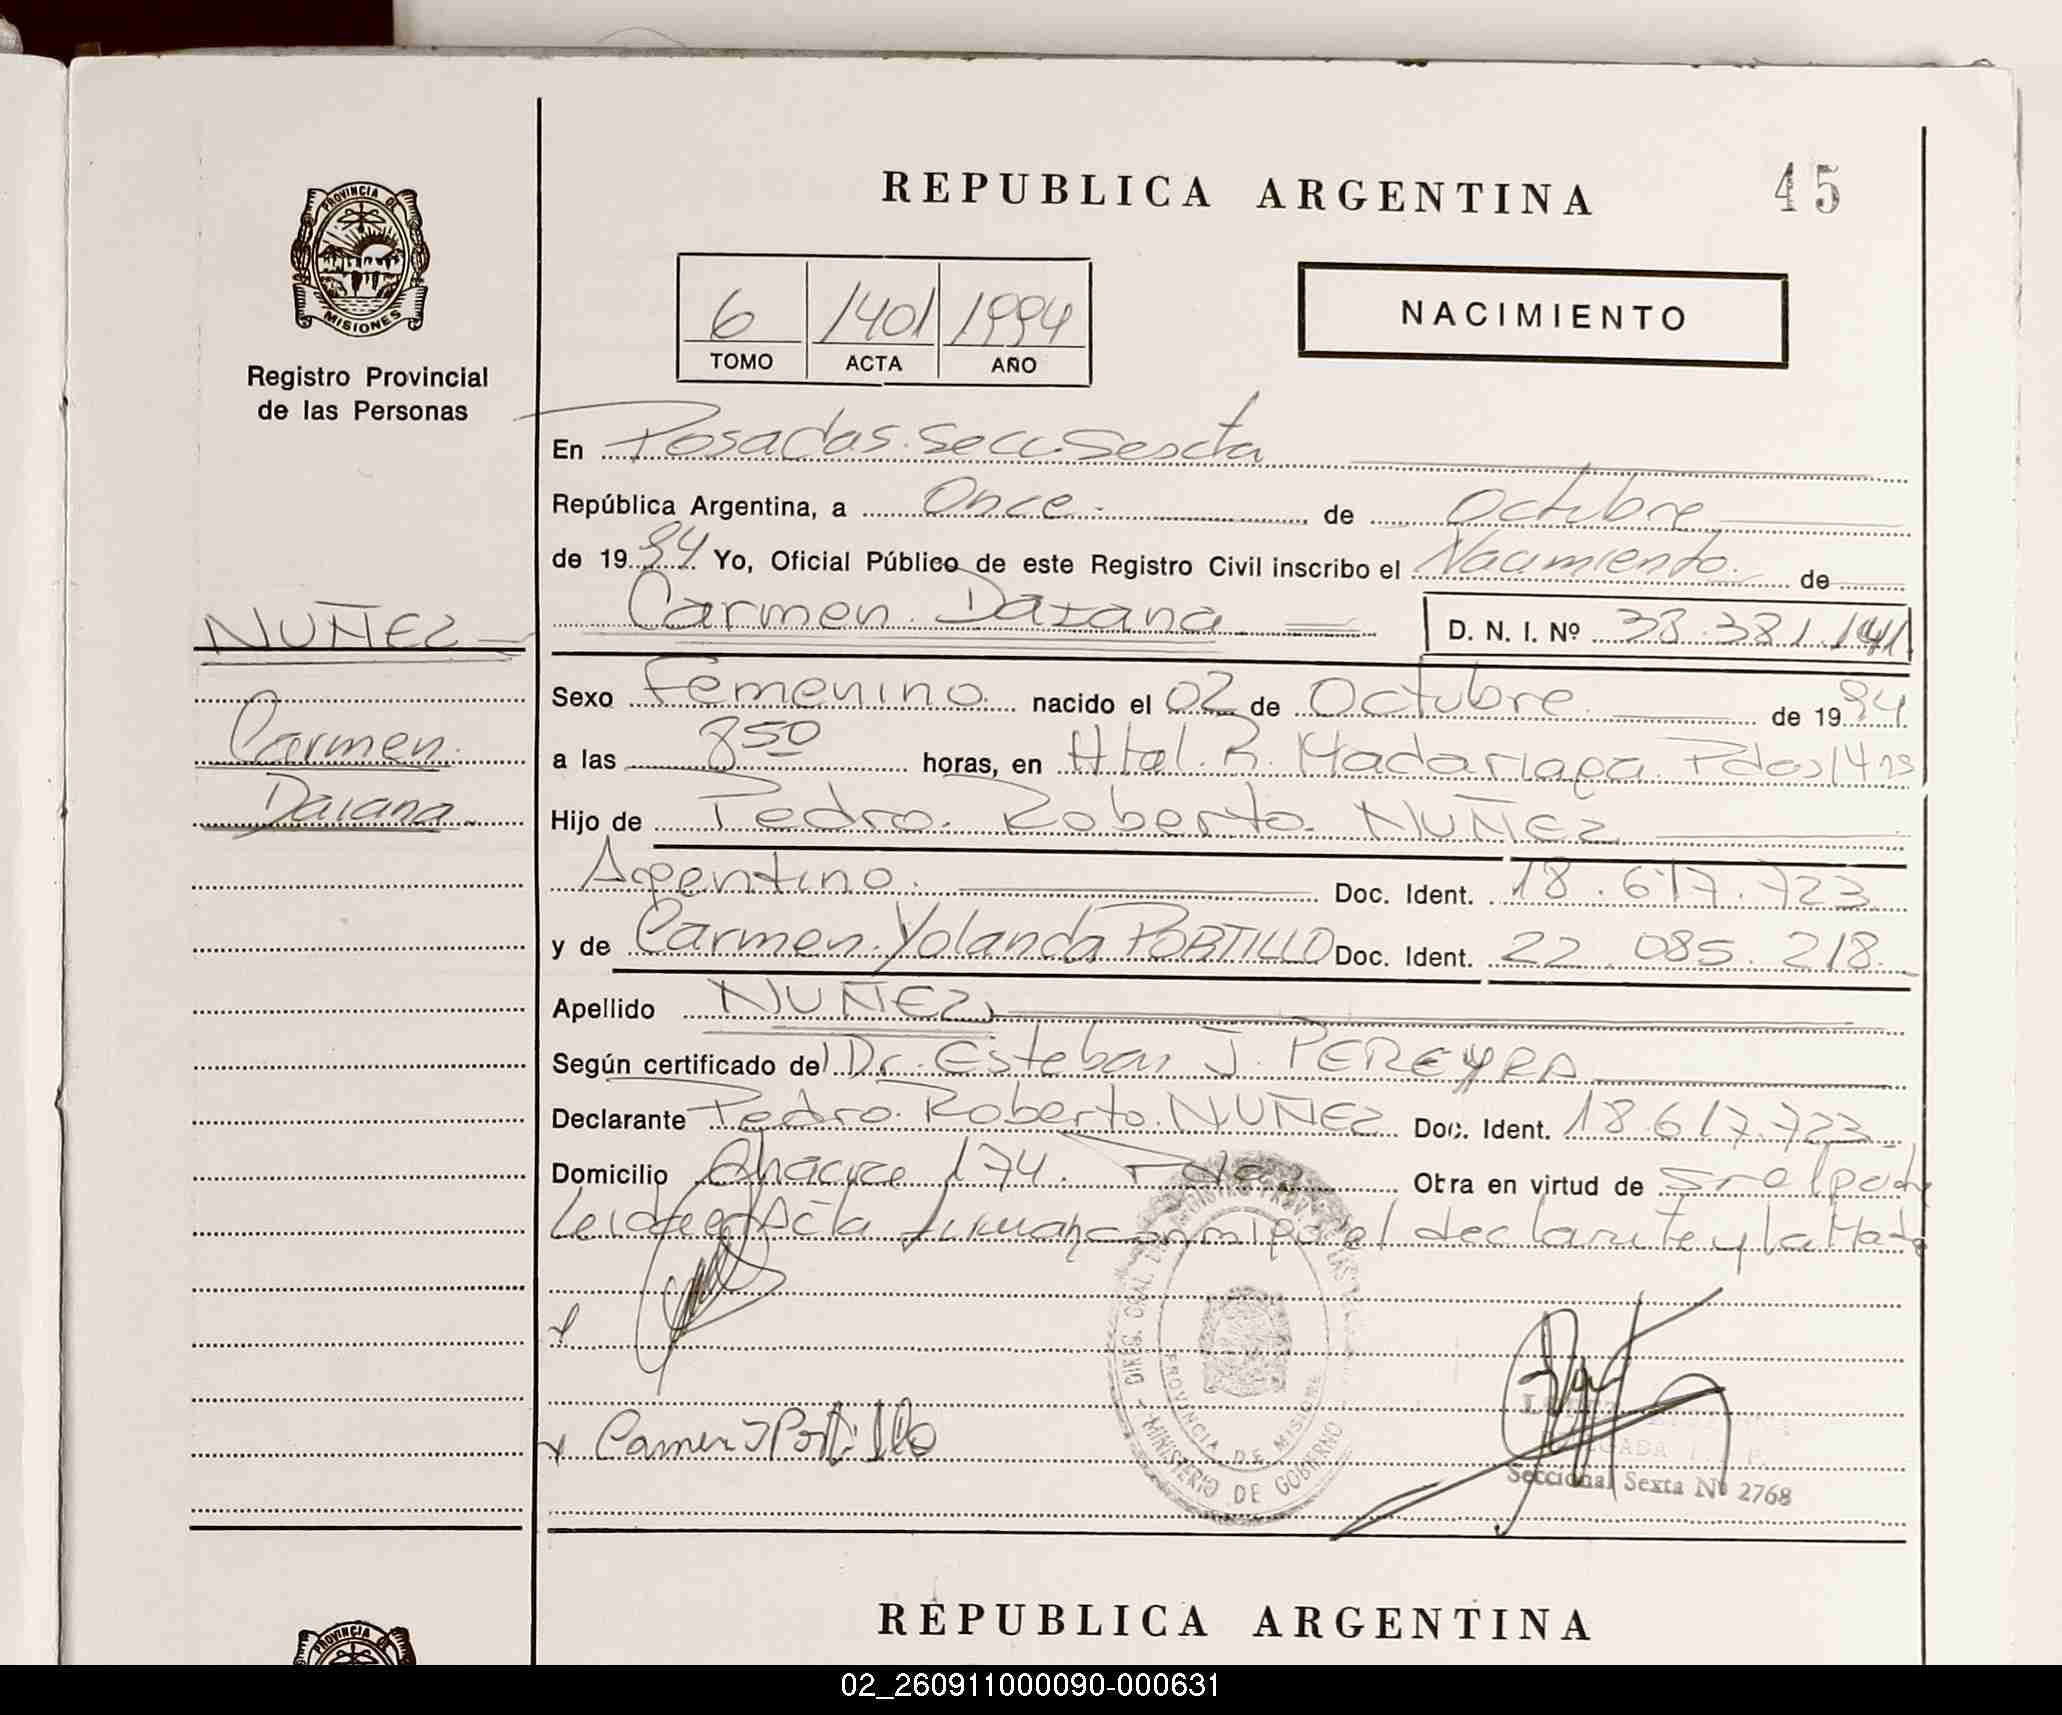 REPUBLICA ARGENTINA
45
PROVINCIA DE
MISIONES
Registro Provincial
de las Personas
6 1401 1994
TOMO ACTA AÑO
NACIMIENTO
En Posadas. Secc. Sexta
República Argentina, a Once de Octubre
de 1994 Yo, Oficial Público de este Registro Civil inscribo el Nacimiento de
NUÑEZ
Carmen Daiana
D. N. I. Nº 38.381.141
Sexo Femenino nacido el 02 de Octubre de 1994
Carmen
a las 8 50 horas, en Htal. R. Madariaga Pdas 14 ns
Daiana
Hijo de Pedro Roberto NUÑEZ
Argentino. Doc. Ident. 18.617.723
y de Carmen Yolanda PORTILLO Doc. Ident. 22.085.218
Apellido NUÑEZ
Según certificado del Dr. Esteban J. PEREYRA
Declarante Pedro Roberto NUÑEZ Doc. Ident. 18.617.723
Domicilio Chacra 174. Pdas Obra en virtud de
Leida el Acta firman conmigo el declarante y la Madre
DIREC. GRAL. DEL REGISTRO PROV. DE LAS
PROVINCIA DE MISIONES
MINISTERIO DE GOBIERNO
x
x Carmen Y Portillo
Seccional Sexta Nº 2768
REPUBLICA ARGENTINA
PROVINCIA DE
02_260911000090-000631